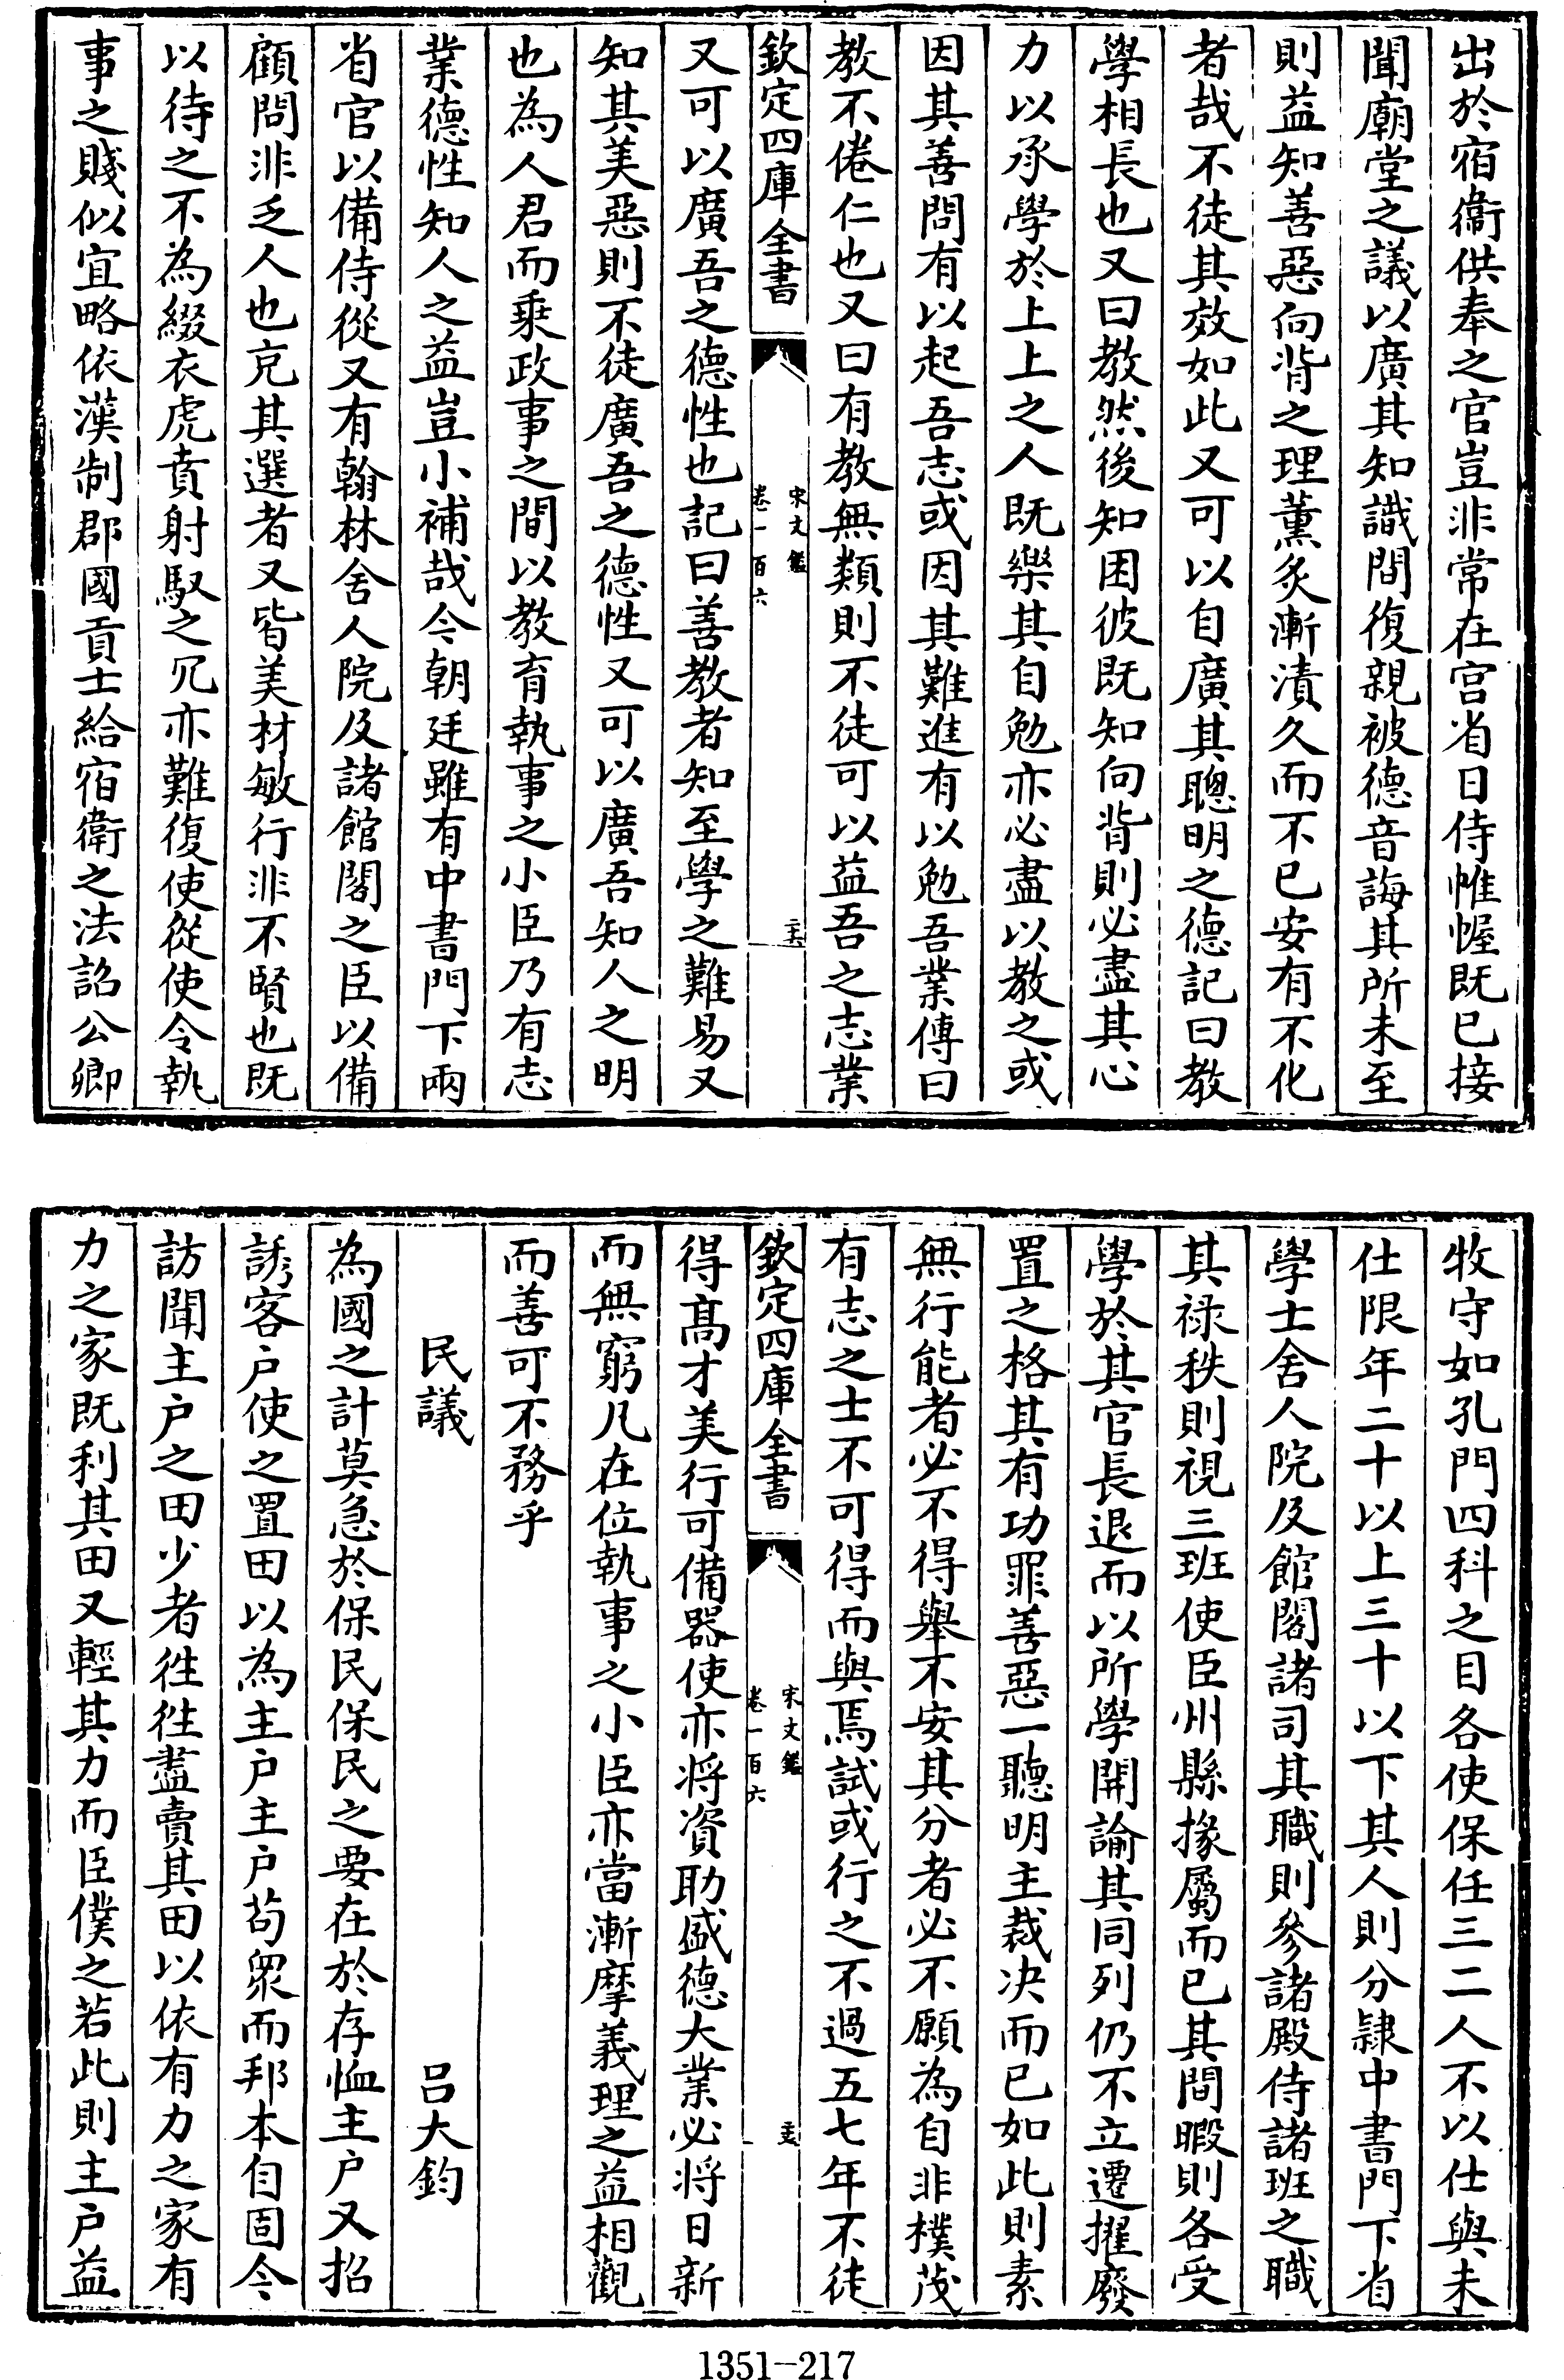 出於宿衞供奉之官豈非常在宫省日侍帷幄既已接
聞廟堂之議以廣其知識間復親被德音誨其所未至
則益知善惡向背之理薫炙漸漬久而不已安有不化
者哉不徒其效如此又可以自廣其聰明之德記曰教
學相長也又曰教然後知困彼既知向背則必盡其心
力以承學於上上之人既樂其自勉亦必盡以教之或
因其善問有以起吾志或因其難進有以勉吾業傳曰
教不倦仁也又曰有教無類則不徒可以益吾之志業
欽定四庫全書
宋文鑑
卷一百六
又可以廣吾之德性也記曰善教者知至學之難易又
知其美惡則不徒廣吾之德性又可以廣吾知人之明
也為人君而乗政事之間以教育執事之小臣乃有志
業德性知人之益豈小補哉今朝廷雖有中書門下兩
省官以備侍從又有翰林舍人院及諸館閣之臣以備
顧問非乏人也克其選者又皆美材敏行非不賢也既
以待之不為綴衣虎賁射馭之冗亦難復使從使令執
事之賤似宜略依漢制郡國貢士給宿衛之法詔公卿
牧守如孔門四科之目各使保任三二人不以仕與未
仕限年二十以上三十以下其人則分隸中書門下省
學士舍人院及館閣諸司其職則參諸殿侍諸班之職
其禄秩則視三班使臣州縣掾屬而已其間暇則各受
學於其官長退而以所學開諭其同列仍不立遷擢廢
置之格其有功罪善惡一聽明主裁决而已如此則素
無行能者必不得舉不安其分者必不願為自非樸茂
有志之士不可得而與焉試或行之不過五七年不徒
欽定四庫全書
宋文鑑
卷一百六
得髙才美行可備器使亦将資助盛德大業必将日新
而無窮凡在位執事之小臣亦當漸摩義理之益相觀
而善可不務乎
民議 吕大鈞
為國之計莫急於保民保民之要在於存恤主户又招
誘客户使之置田以為主户主户苟衆而邦本自固今
訪聞主户之田少者徃徃盡賣其田以依有力之家有
力之家既利其田又輕其力而臣僕之若此則主户益
1351-217